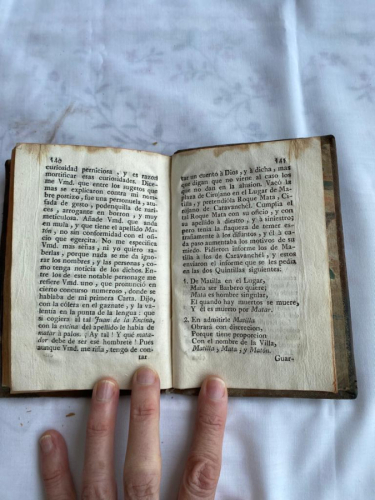 140
curiosidad perniciosa, y es razon
mortificar esas curiosidades. Dice-
me Vmd. que entre los sugetos que
se explicaron contra mi nom-
bre postizo, fue una personuela, au-
fada de gesto, podenquilla de nari-
ces, arrogante en borron, y muy
meticulosa. Añade Vmd. que anda
en mula, y que tiene el apellido Ma-
tón, no sin conformidad con el ofi-
cio que egercita. No me especifica
Vmd. mas señas, ni yo quiero sa-
berlas, porque nada se me da igno-
rar los nombres, y las personas, co-
mo tenga noticia de los dichos. En-
tre los de este notable personage me
refiere Vmd. uno, que pronunció en
cierto concurso numeroso, donde se
hablaba de mi primera Carta. Dijo,
con la cólera en el gaznate, y la va-
lentía en la punta de la lengua: que
si cogiera al tal Juan de la Encina,
con la encina del apellido le habia de
matar á palos. ¡Ay tal! Y que mata-
dor debe de ser ese hombrete! Pues
aunque Vmd. me riña, tengo de con-
tar
141
tar un cuento á Dios, y á dicha, mas
que digan que no viene al caso los
que no dan en la alusion. Vacó la
plaza de Cirujano en el Lugar de Ma-
tilla, y pretendióla Roque Mata, Ci-
rujano de Caravanchel. Cumplia el
tal Roque Mata con su oficio, y con
su apellido á diestro, y á siniestro;
pero traía la flaqueza de temer ex-
trañamente á los difuntos, y él á ca-
da paso aumentaba los motivos de su
miedo. Pidieron informe los de Ma-
tilla á los de Caravanchel, y estos
enviaron el informe que se les pedia
en las dos Quintillas siguientes:
1. De Matilla en el Lugar,
Mata ser Barbero quiere;
Mata es hombre singular,
El quando hay muertos se muere,
Y él es muerto por Matar.
2. En admitirle Matilla
Obrará con discrecion,
Porque tiene proporcion
Con el nombre de la Villa,
Matilla, Mata, y Matón.
Guar-